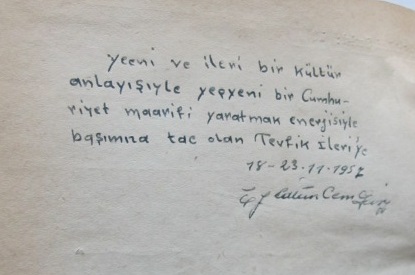 yeeni ve ileri bir kültür
anlayışıyle yepyeni bir Cumhu-
riyet maarifi yaratmak enerjisiyle
başımıza tac olan Tevfik İleri'ye
18-23.11.1952